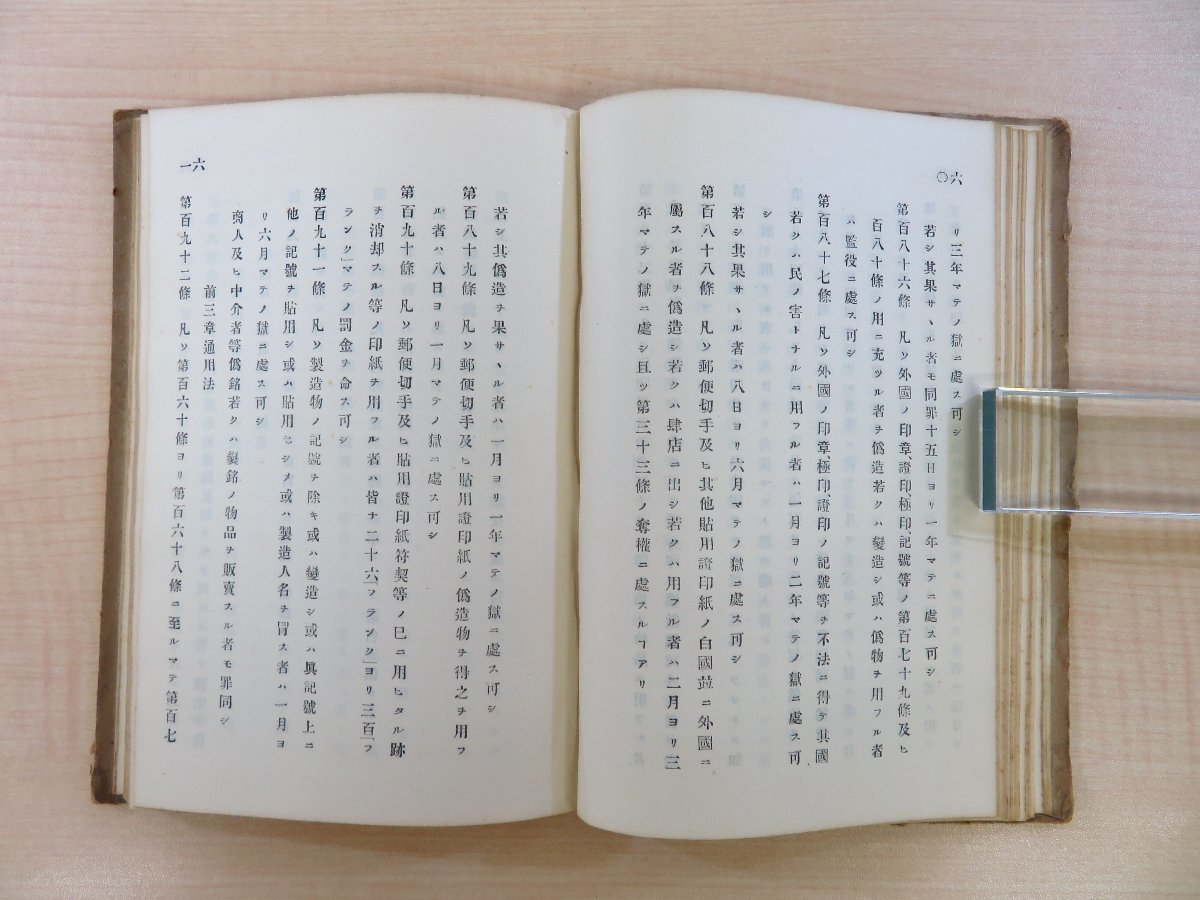 六〇
リ三年マテノ獄ニ處ス可シ
若シ其果サヽル者モ同罪十五日ヨリ一年マテニ處ス可シ
第百八十六條 凡ソ外國ノ印章、證印、極印、記號等ノ第百七十九條及ヒ
百八十條ノ用ニ充ツル者ヲ僞造若クハ變造シ或ハ僞物ヲ用フル者
ハ懲役ニ處ス可シ
第百八十七條 凡ソ外國ノ印章、極印、證印ノ記號等ヲ不法ニ得テ其國
若クハ民ノ害トナルニ用フル者ハ一月ヨリ二年マテノ獄ニ處ス可
シ
若シ其果サヽル者ハ八日ヨリ六月マテノ獄ニ處ス可シ
第百八十八條 凡ソ郵便切手及ヒ其他貼用證印紙ノ白國並ニ外國ニ
屬スル者ヲ僞造シ若クハ肆店ニ出シ若クハ用フル者ハ二月ヨリ三
年マテノ獄ニ處シ且ツ第三十三條ノ奪權ニ處スルヿアリ
六一
若シ其僞造ヲ果サヽル者ハ一月ヨリ一年マテノ獄ニ處ス可シ
第百八十九條 凡ソ郵便切手及ヒ貼用證印紙ノ僞造物ヲ得之ヲ用フ
ル者ハ八日ヨリ一月マテノ獄ニ處ス可シ
第百九十條 凡ソ郵便切手及ヒ貼用證印紙符契等ノ已ニ用ヒタル跡
ヲ消却スル等ノ印紙ヲ用フル者ハ皆ナ二十六「フランク」ヨリ三百「フ
ランク」マテノ罰金ヲ命ス可シ
第百九十一條 凡ソ製造物ノ記號ヲ除キ或ハ變造シ或ハ眞記號上ニ
他ノ記號ヲ貼用シ或ハ貼用セシメ或ハ製造人名ヲ冒ス者ハ一月ヨ
リ六月マテノ獄ニ處ス可シ
商人及ヒ中介者等僞銘若クハ變銘ノ物品ヲ販賣スル者モ罪同シ
前三章通用法
第百九十二條 凡ソ第百六十條ヨリ第百六十八條ニ至ルマテ第百七